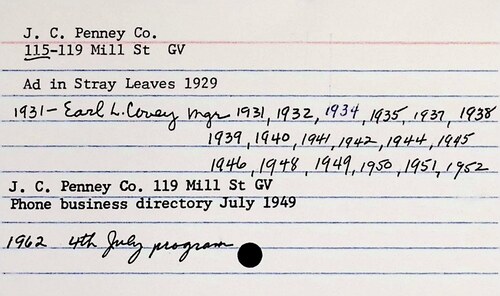 J. C. Penney Co.
115-119 Mill St GV
Ad in Stray Leaves 1929
1931- Earl L. Covey Mgr 1931, 1932, 1934, 1935, 1937, 1938
1939, 1940, 1941, 1942, 1944, 1945
1946, 1948, 1949, 1950, 1951, 1952
J. C. Penney Co. 119 Mill St GV
Phone business directory July 1949
1962 4th July program